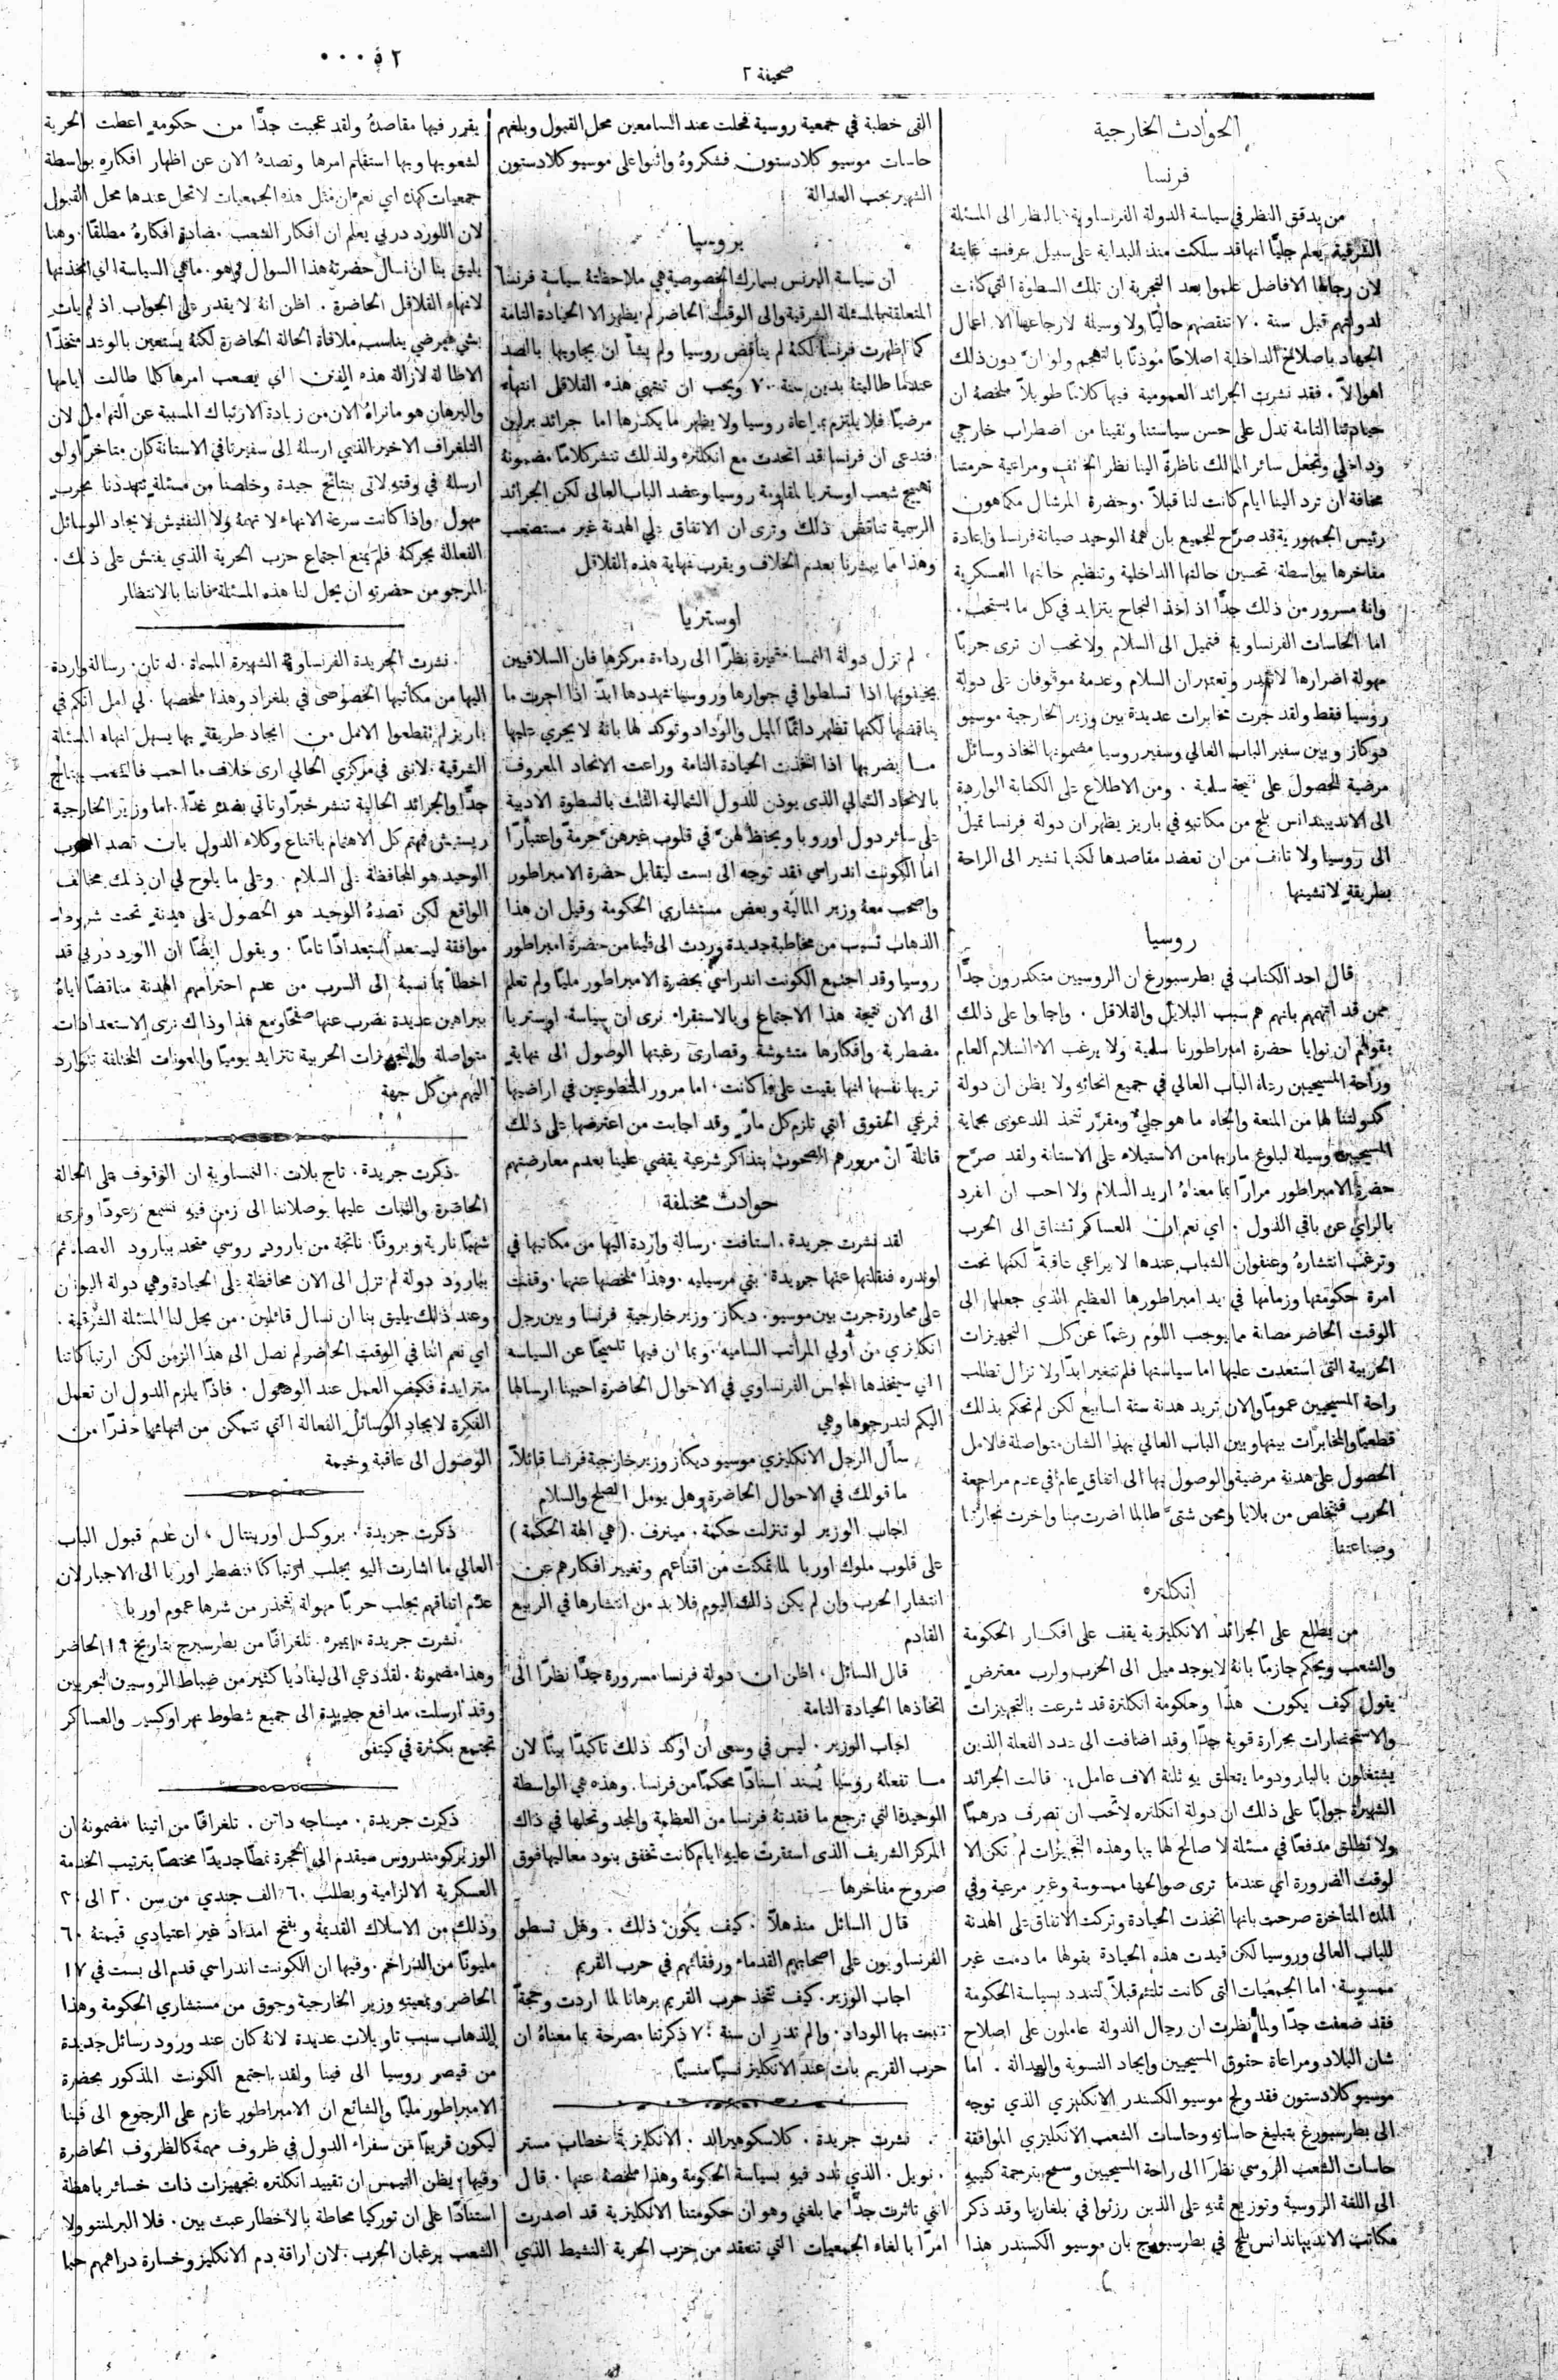 صحيفة ٢
الحوادث الخارجية
فرنسا
من يدقق النظر في سياسة الدولة الفرنساوية بالنظر الى المسئلة
الشرقية يعلم جليًا انها قد سلكت منذ البداية على سبيل عرفت غايتهُ
لان رجالها الافاضل علموا بعد التجربة ان تلك السطوة التي كانت
لدولتهم قبل سنة ٧٠ تنقصهم حاليًا ولا وسيلة لارجاعها الا اعمال
الجهاد باصلاح الداخلية اصلاحًا موذنًا بالتهجم ولو انّ دون ذلك
اهوالاً . فقد نشرت الجرائد العمومية فيها كلامًا طويلاً ملخصهُ ان
حيادتنا التامة تدل على حسن سياستنا وتقينا من اضطراب خارجي
وداخلي وتجعل سائر الممالك ناظرة الينا نظر الخائف ومراعية حرمتنا
مخافة ان ترد الينا ايام كانت لنا قبلاً . وحضرة المرشال مكماهون
رئيس الجمهورية قد صرّح للجميع بان همهُ الوحيد صيانة فرنسا واعادة
مفاخرها بواسطة تحسين حالتها الداخلية وتنظيم حالتها العسكرية
وانهُ مسرور من ذلك جدًّا اذ اخذ النجاح يتزايد في كل ما يستحب .
اما الحاسات الفرنساوية فتميل الى السلام ولا تحب ان ترى حربًا
مهولة اضرارها لا تقدر وتعتبر ان السلام وعدمهُ موقوفان على دولة
روسيا فقط ولقد جرت مخابرات عديدة بين وزير الخارجية موسيو
دوكاز وبين سفير الباب العالي وسفير روسيا مضمونها اتخاذ وسائل
مرضية للحصول على نتيجة سلمية . ومن الاطلاع على الكتابة الواردة
الى الاندبندانس بلج من مكاتبهِ في باريز يظهر ان دولة فرنسا تميل
الى روسيا ولا تانف من ان تعضد مقاصدها لكنها تشير الى الراحة
بطريقةٍ لا تشينها
روسيا
قال احد الكتاب في بطرسبورغ ان الروسيين متكدرون جدًّا
ممن قد اتهمهم بانهم هم سبب البلابل والقلاقل . واجابوا على ذلك
بقولهم ان نوايا حضرة امبراطورنا سلمية ولا يرغب الا السلام العام
وراحة المسيحيين رعاة الباب العالي في جميع انحائهِ ولا يظن ان دولة
كدولتنا لها من المنعة والجاه ما هو جليّ ومقرّر تتخذ الدعوى بحماية
المسيحيين وسيلة لبلوغ ماربها من الاستيلاء على الاستانة ولقد صرّح
حضرة الامبراطور مرارًا بما معناهُ اريد السلام ولا احب ان انفرد
بالراي عن باقي الدول . اي نعم ان العساكر تشتاق الى الحرب
وترغب انتشارهُ وعنفوان الشباب عندها لا يراعي عاقبةً لكنها تحت
امرة حكومتها وزمامها في يد امبراطورها العظيم الذي جعلها الى
الوقت الحاضر مصانة مما يوجب اللوم رغمًا عن كل التجهيزات
الحربية التي استعدت عليها اما سياستها فلم تتغير ابدًا ولا تزال تطلب
راحة المسيحيين عمومًا والان تريد هدنة ستة اسابيع لكن لم تحكم بذلك
قطعيًا والمخابرات بينها وبين الباب العالي بهذا الشان متواصلة فالامل
الحصول على هدنة مرضية والوصول بها الى اتفاق عام في عدم مراجعة
الحرب فنتخلص من بلايا ومحن شتىّ طالما اضرت بنا واخرت تجارتنا
وصناعتنا
انكلتره
من يطلع على الجرائد الانكليزية يقف على افكار الحكومة
والشعب ويحكم جازمًا بانهُ لا يوجد ميل الى الحرب ولرب معترضٍ
يقول كيف يكون هذا وحكومة انكلترة قد شرعت بالتجهيزات
والاستحضارات بحرارة قوية جدًا وقد اضافت الى عدد الفعلة الذين
يشتغلون بالبارود وما يتعلق بهِ ثلثة الاف عامل . قالت الجرائد
الشهيرة جوابًا على ذلك ان دولة انكلتره لا تحب ان تصرف درهمًا
ولا تطلق مدفعًا في مسئلة لا صالح لها بها وهذه التجهيزات لم تكن الا
لوقت الضرورة اي عندما ترى صوالحها ممسوسة وغير مرعية وفي
المدة المتأخرة صرحت بانها اتخذت الحيادة وتركت الاتفاق على الهدنة
للباب العالي وروسيا لكن قيدت هذه الحيادة بقولها ما دمت غير
ممسوسة . اما الجمعيات التي كانت تلتئم قبلاً لتندد بسياسة الحكومة
فقد ضعفت جدًا ولما نظرت ان رجال الدولة عاملون على اصلاح
شان البلاد ومراعاة حقوق المسيحيين وايجاد التسوية والعدالة . اما
موسيو كلادستون فقد ولج موسيو الكسندر الانكليزي الذي توجه
الى بطرسبورغ بتبليغ حاساتهِ وحاسات الشعب الانكليزي الموافقة
حاسات الشعب الروسي نظرًا الى راحة المسيحيين وسمح بترجمة كتيبهِ
الى اللغة الروسية وتوزيع ثمنهِ على الذين رزئوا في بلغاريا وقد ذكر
مكاتب الانديبانداس بلج في بطرسبورج بان موسيو الكسندر هذا
القى خطبة في جمعية روسية فحلت عند السامعين محل القبول وبلغهم
حاسات موسيو كلادستون فشكروهُ واثنوا على موسيو كلادستون
الشهير بحب العدالة
بروسيا
ان سياسة البرنس بسمارك الخصوصية هي ملاحظتهُ سياسة فرنسا
المتعلقة بالمسئلة الشرقية والى الوقت الحاضر لم يظهر الا الحيادة التامة
كما اظهرت فرنسا لكنهُ لم يناقض روسيا ولم يشأ ان يجاوبها بالصد
عندما طالبتهُ بدين سنة ٧٠ ويحب ان تنتهي هذه القلاقل انتهاء
مرضيًا فلا يلتزم بمراعاة روسيا ولا يظهر ما يكدرها اما جرائد برلين
فتدعى ان فرنسا قد اتحدت مع انكلتره ولذلك تنشر كلامًا مضمونهُ
تهييج شعب اوستريا لمقاومة روسيا وعضد الباب العالي لكن الجرائد
الرسمية تناقض ذلك وترى ان الاتفاق على الهدنة غير مستصعب
وهذا مما يبشرنا بعدم الخلاف ويقرب نهاية هذه القلاقل
اوستريا
لم تزل دولة النمسا متحيرة نظرًا الى رداءة مركزها فان السلافيين
يخيفونها اذا تسلطوا في جوارها وروسيا تهددها ابدًا اذا اجرت ما
يناقضها لكنها تظهر دائمًا الميل والوداد وتوكد لها بانهُ لا يجري عليها
ما يضر بها اذا اتخذت الحيادة التامة وراعت الاتحاد المعروف
بالاتحاد الشمالي الذي يوذن للدول الشمالية الثلث بالسطوة الادبية
على سائر دول اوروبا ويحفظ لهنّ في قلوب غيرهنّ حرمةً واعتبارًا
اما الكونت اندراسي فقد توجه الى بست ليقابل حضرة الامبراطور
واصحب معهُ وزير المالية وبعض مستشاري الحكومة وقيل ان هذا
الذهاب تسبب من مخاطبة جديدة وردت الى فينا من حضرة امبراطور
روسيا وقد اجتمع الكونت اندراسي بحضرة الامبراطور مليًا ولم تعلم
الى الان نتيجة هذا الاجتماع وبالاستقراء نرى ان سياسة اوستريا
مضطربة وافكارها متشوشة وقصارى رغبتها الوصول الى نهايةٍ
تريها نفسها انها بقيت على ما كانت . اما مرور المتطوعين في اراضيها
فمرعي الحقوق التي تلزم كل مارّ وقد اجابت من اعترضها على ذلك
قائلةً انّ مرورهم المصحوب بتذاكر شرعية يقضي علينا بعدم معارضتهم
حوادث مختلفة
لقد نشرت جريدة . استافت . رسالة واردة اليها من مكاتبها في
لوندره فنقلتها عنها جريدة . بتي مرسيليه . وهذا ملخصها عنها . وقفت
على محاورة جرت بين موسيو . ديكاز . وزير خارجية فرنسا وبين رجل
انكليزي من أولي المراتب السامية . وبما ان فيها تلميحًا عن السياسة
التي سيتخذها المجلس الفرنساوي في الاحوال الحاضرة احببنا ارسالها
اليكم لتدرجوها وهي
سأل الرجل الانكليزي موسيو ديكاز وزير خارجية فرنسا قائلاً
ما قولك في الاحوال الحاضرة وهل يومل الصلح والسلام
اجاب الوزير لو تنزلت حكمة . مينرف . (هي الهة الحكمة)
على قلوب ملوك اوربا لما تمكنت من اقناعهم وتغيير افكارهم عن
انتشار الحرب وان لم يكن ذلك اليوم فلا بد من انتشارها في الربيع
القادم
قال السائل . اظن ان دولة فرنسا مسرورة جدًا نظرًا الى
اتخاذها الحيادة التامة
اجاب الوزير . ليس في وسعي أن اوكد ذلك تاكيدًا بينًا لان
ما تفعلهُ روسيا يُسند اسنادًا محكمًا من فرنسا . وهذه هي الواسطة
الوحيدة التي ترجع ما فقدتهُ فرنسا من العظمة والمجد وتحلها في ذاك
المركز الشريف الذي استقرت عليهِ ايام كانت تخفق بنود معاليها فوق
صروح مفاخرها
قال السائل منذهلاً . كيف يكون ذلك . وهل تسطو
الفرنساويون على اصحابهم القدماء ورفقائهم في حرب القريم
اجاب الوزير . كيف تتخذ حرب القريم برهانا لما اردت وحجةً
تثبت بها الوداد . والم تدرِ ان سنة ٧٠ ذكرتنا مصرحة بما معناهُ ان
حرب القريم بات عند الانكليز نسيًا منسيًا
نشرت جريدة . كلاسكو هيرالد . الانكليزية خطاب مستر
. نويل . الذي ندد فيهِ بسياسة الحكومة وهذا ملخصهُ عنها . قال
انني تاثرت جدًّا مما بلغني وهو ان حكومتنا الانكليزية قد اصدرت
امرًا بالغاء الجمعيات التي تنعقد من حزب الحرية النشيط الذي
يقرر فيها مقاصدهُ ولقد عجبت جدًّا من حكومةٍ اعطت الحرية
لشعوبها وبها استقام امرها وتصدهُ الان عن اظهار افكارهِ بواسطة
جمعيات كهذه اي نعم ان مثل هذه الجمعيات لا تحل عندها محل القبول
لان اللورد دربي يعلم ان افكار الشعب مضادة افكارهُ مطلقًا . وهنا
يليق بنا ان نسال حضرتهُ هذا السوال وهو . ما هي السياسة التي اتخذتها
لانهاء القلاقل الحاضرة . اظن انهُ لا يقدر على الجواب اذ لم يات
بشيء مرضي يناسب ملافاة الحالة الحاضرة لكنهُ يستعين بالوعد متخذًا
الاطالة لازالة هذه الفتن اي يصعب امرها كلما طالت ايامها
والبرهان هو ما نراهُ الان من زيادة الارتباك المسببة عن التماهل لان
التلغراف الاخير الذي ارسلهُ الى سفيرنا في الاستانة كان متاخرًا ولو
ارسلهُ في وقتهِ لاتى بنتائج جيدة وخلصنا من مسئلةٍ تتهددنا بحربٍ
مهول . واذا كانت سرعة الانهاء لا تهمهُ ولا التفتيش لايجاد الوسائل
الفعالة يحركهُ فلمَ يمنع اجتماع حزب الحرية الذي يفتش على ذلك .
المرجو من حضرتهِ ان يحل لنا هذه المسئلة فاننا بالانتظار
نشرت الجريدة الفرنساوية الشهيرة المسماة . له تان . رسالة واردة
اليها من مكاتبها الخصوصي في بلغراد وهذا ملخصها . لي امل انكم في
باريز لم تقطعوا الامل من ايجاد طريقةٍ بها يسهل انهاء المسئلة
الشرقية . لانني في مركزي الحالي ارى خلاف ما احب فالشعب يهتاج
جدًّا والجرائد الحالية تنشر خبرًا وتاتي بضدهِ غدًا . اما وزير الخارجية
ريستيش فمهتم كل الاهتمام باقناع وكلاء الدول بان قصد السرب
الوحيد هو المحافظة على السلام . وعلى ما يلوح لي ان ذلك مخالف
الواقع لكن قصدهُ الوحيد هو الحصول على هدنةٍ تحت شروط
موافقة ليستعد استعدادًا تامًا . ويقول ايضًا ان اللورد دربي قد
اخطأ بما نسبهُ الى السرب من عدم احترامهم الهدنة مناقضًا اياهُ
ببراهين عديدة نضرب عنها صفحًا ومع هذا وذاك نرى الاستعدادات
متواصلة والتجهيزات الحربية تتزايد يوميًا والمعونات المختلفة تتوارد
اليهم من كل جهة
ذكرت جريدة . تاج بلات . النمساوية ان الوقوف على الحالة
الحاضرة والثبات عليها يوصلاننا الى زمن فيهِ نسمع رعودًا ونرى
شهبًا نارية وبروقًا ناتجة من بارود روسي متحد ببارود العصاة ثم
ببارود دولة لم تزل الى الان محافظة على الحيادة وهي دولة اليونان
وعند ذلك يليق بنا ان نسال قائلين . من يحل لنا المسئلة الشرقية .
اي نعم اننا في الوقت الحاضر لم نصل الى هذا الزمن لكن ارتباكاتنا
متزايدة فكيف العمل عند الوصول . فاذًا يلزم الدول ان تعمل
الفكرة لايجاد الوسائل الفعالة التي تتمكن من انهائها حذرًا من
الوصول الى عاقبة وخيمة
ذكرت جريدة . بروكسل اورينتال . ان عدم قبول الباب
العالي ما اشارت اليهِ يجلب ارتباكًا فتضطر اوربا الى الاجبار لان
عدم اتفاقهم يجلب حربًا مهولة تحذر من شرها عموم اوربا
نشرت جريدة . ايميره . تلغرافًا من بطرسبرج بتاريخ ١٩ الحاضر
وهذا مضمونهُ . لقد دعي الى ليفاديا كثير من ضباط الروسيين البحريين
وقد ارسلت مدافع جديدة الى جميع شطوط نهر اوكسير والعساكر
تجتمع بكثرة في كيتفن
ذكرت جريدة . ميساجه داتن . تلغرافًا من اتينا مضمونهُ ان
الوزير كومندروس سيقدم الى الحجرة نمطًا جديدًا مختصًا بترتيب الخدمة
العسكرية الالزامية ويطلب ٦٠ الف جندي من سن ٢٠ الى
وذلك من الاسلاك القديمة ويفتح امدادًا غير اعتيادي قيمتهُ ٦٠
مليونًا من الدراخم . وفيها ان الكونت اندراسي قدم الى بست في ١٧
الحاضر وبمعيتهِ وزير الخارجية وجوق من مستشاري الحكومة وهذا
الذهاب سبب تاويلات عديدة لانهُ كان عند ورود رسائل جديدة
من قيصر روسيا الى فينا ولقد اجتمع الكونت المذكور بحضرة
الامبراطور مليًا والشائع ان الامبراطور عازم على الرجوع الى فينا
ليكون قريبًا من سفراء الدول في ظروف مهمة كالظروف الحاضرة
وفيها . يظن التيمس ان تقييد انكلتره بتجهيزات ذات خسائر باهظة
استنادًا على ان توركيا محاطة بالاخطار عبث بين . فلا البرلمنتو ولا
الشعب يرغبان الحرب . لان اراقة دم الانكليز وخسارة دراهمهم حبا